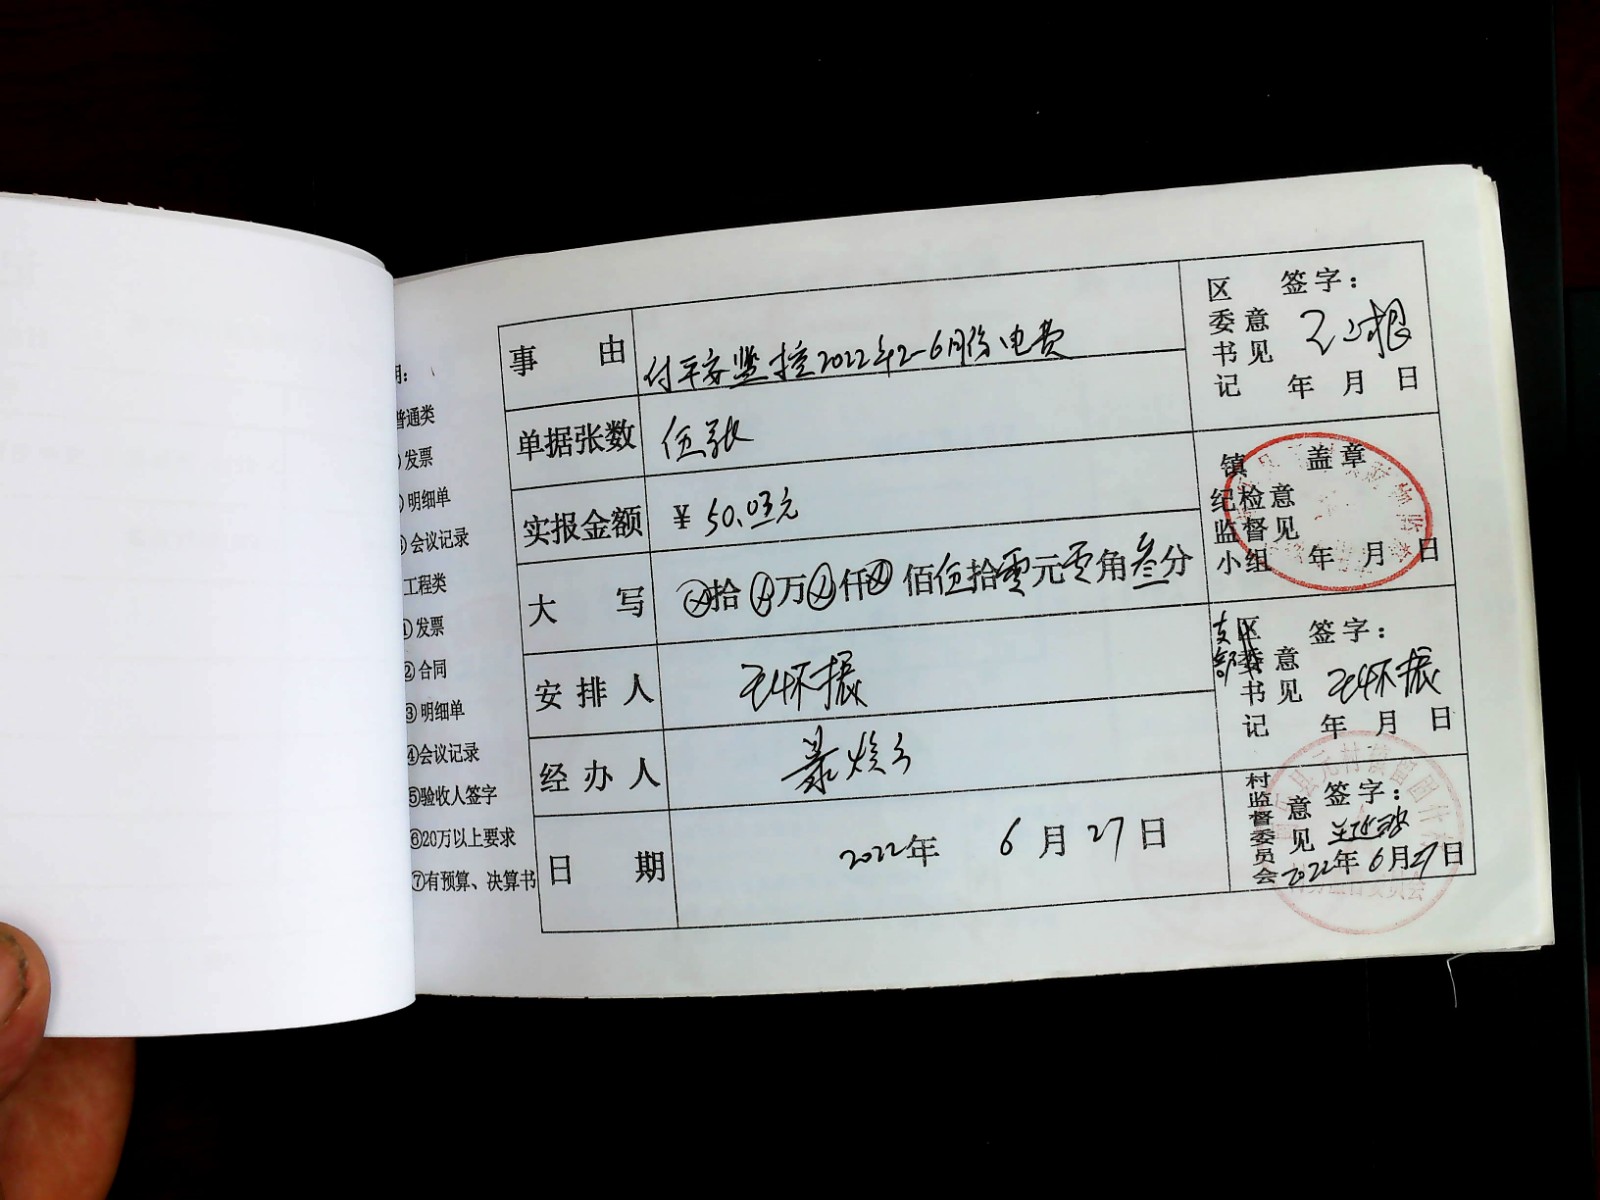 普通类
发票
明细单
会议记录
工程类
①发票
②合同
③明细单
④会议记录
⑤验收人签字
⑥20万以上要求
⑦有预算、决算书
事由 付平安监控2022年2-6月份电费
单据张数 伍张
实报金额 ¥50.03元
大写 ⊗拾⊗万⊗仟⊗佰伍拾零元零角叁分
安排人 王怀振
经办人
日期 2022年6月27日
区委书记意见 签字:
年 月 日
镇纪检监督小组意见 盖章
年 月 日
支部
区委书记意见 签字: 王怀振
年 月 日
村监督委员会意见 签字:
2022年6月27日